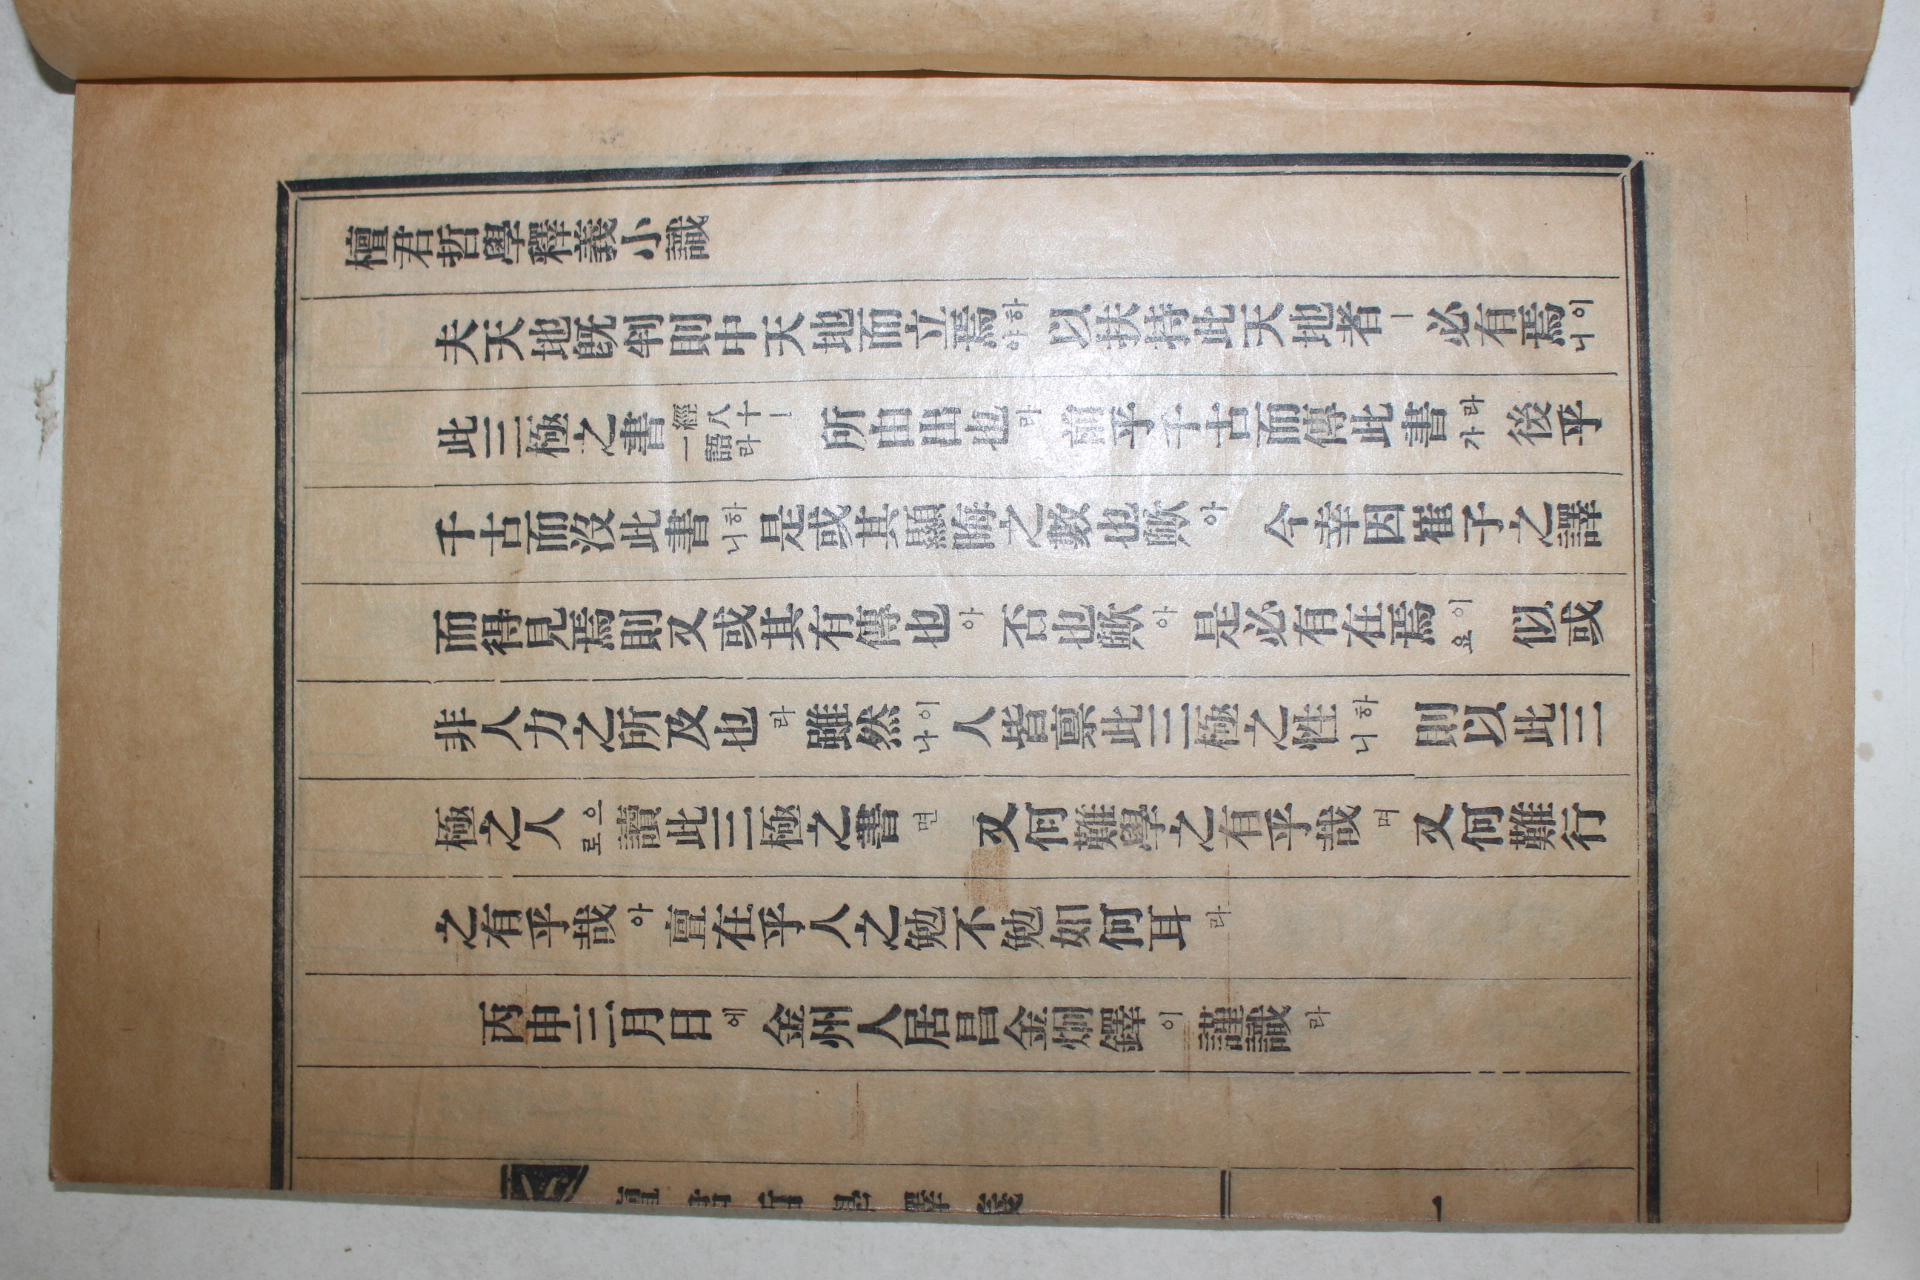 檀君哲學釋義小識
夫天地旣判則中天地而立焉하야以扶持此天地者ㅣ必有焉이니
此三極之書經八十一一語라所由出也라前乎千古而傳此書라가後乎
千古而沒此書하니是或其顯晦之數也歟아今幸因崔子之譯
而得見焉則又或其有傳也아否也歟아是必有在焉이요似或
非人力之所及也라雖然이나人皆禀此三極之性하니則以此三
極之人으로讀此三極之書면又何難學之有乎哉며又何難行
之有乎哉아亶在乎人之勉不勉如何耳라
丙申三月日에金州人居昌金炯鐸이謹識라